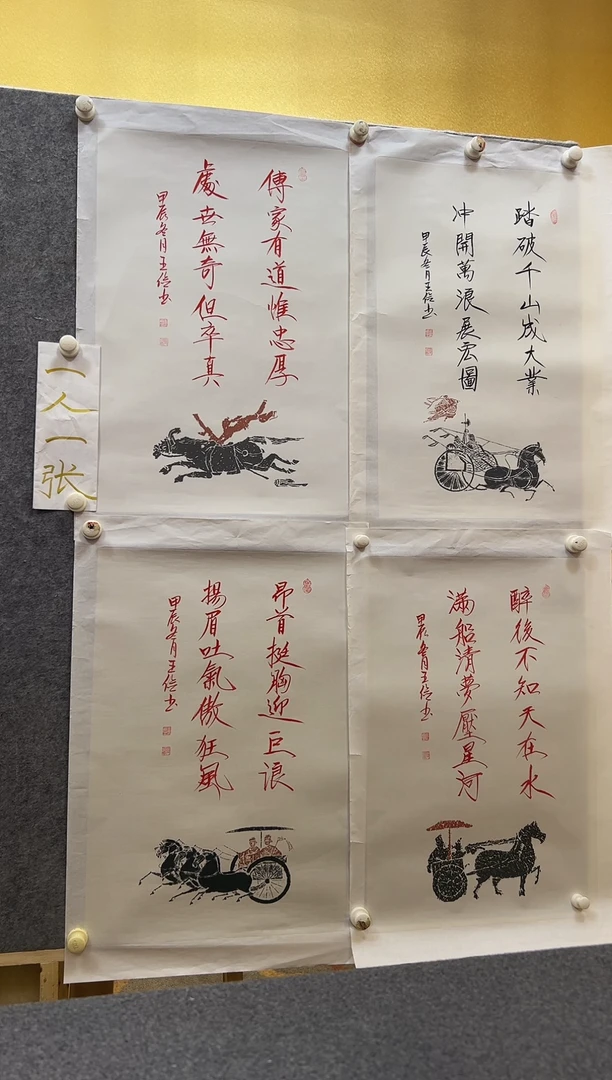 傳家有道惟忠厚
處世無奇但卒真
甲辰冬月王信书
踏破千山成大業
冲開萬浪展宏圖
甲辰冬月王信书
一人一张
昂首挺胸迎巨浪
揚眉吐氣傲狂風
甲辰冬月王信书
醉後不知天在水
滿船清夢壓星河
甲辰冬月王信书